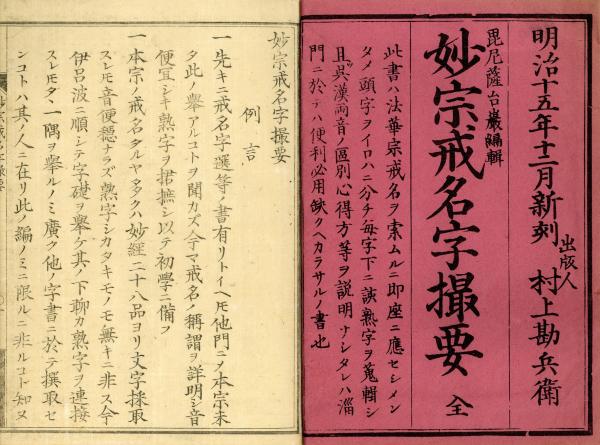 明治十五年十二月新刻
出版人
村上勘兵衛
毘尼薩台巖編輯
妙宗戒名字撮要 全
此書ハ法華宗戒名ヲ索ムルニ即座ニ應セシメン
タメ頭字ヲイロハニ分チ毎字下ニ該熟字ヲ蒐輯シ
且呉漢両音ノ區別心得方等ヲ説明サシタレハ緇
門ニ於テハ便利必用缺クヘカラサルノ書也
妙宗戒名字撮要
例言
一先キニ戒名字選等ノ書有リトイヘ𪜈他門ニメ本宗未
タ此ノ舉アルコトヲ聞カズ今マ戒名ノ稱謂ヲ詳明シ音
便宜シキ熟字ヲ捃摭シ以テ初學ニ備フ
一本宗ノ戒名タルヤタクハ妙經二十八品ヨリ文字採取
スレ𪜈音便穏ナラズ熟字シカタキモノモ無キニ非ス今
伊呂波ニ順シテ字礎ヲ舉ゲ其ノ下聊カ熟字ヲ連接
ス𪜈タヾ一隅ヲ舉ルノミ廣ク他ノ字書ニ於テ撰取セ
ンコトハ其ノ人ニ在リ此ノ編ノミニ限ルニ非ルコト知ヌ
妙宗戒名字撮要